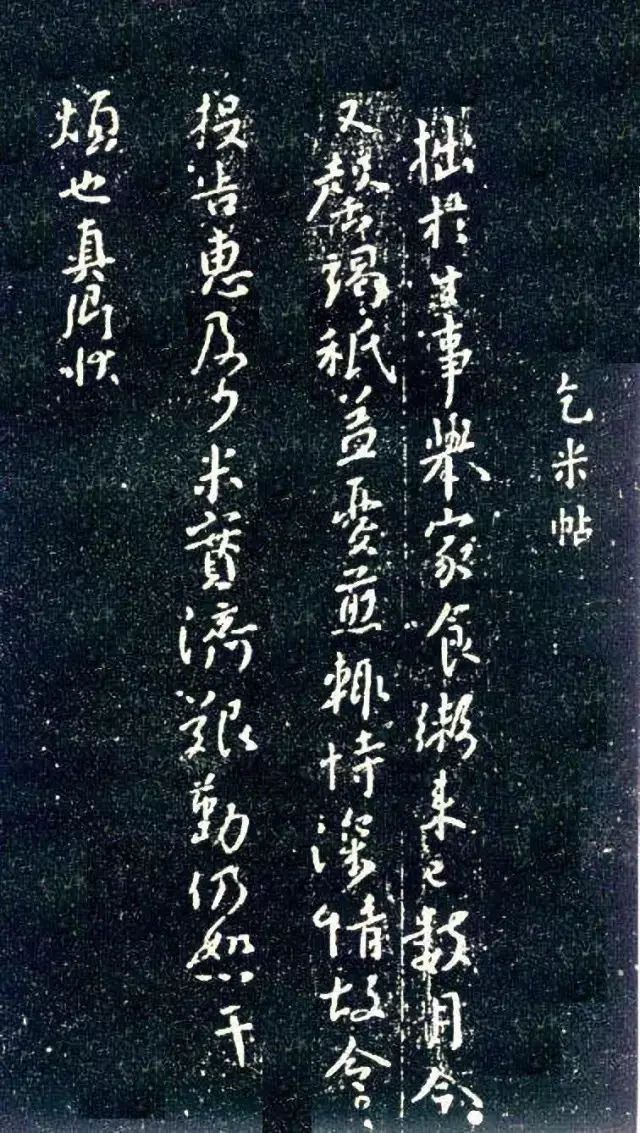 乞米帖
拙於生事舉家食粥来已數月今
又罄竭秖益憂煎輙恃深情故令
投告惠及少米實濟艱勤仍恕干
煩也真卿狀